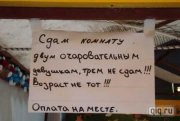 Сдам комнату
двум очаровательным
девушкам, трем не сдам!!!
Возраст не тот!!!
Оплата на месте.
qip.ru